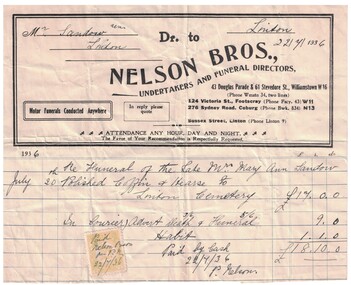 Mr Sandow
Linton
Dr. to
Linton
22/7/1936
NELSON BROS.,
UNDERTAKERS AND FUNERAL DIRECTORS,
Motor Funerals Conducted Anywhere
In reply please
quote
43 Douglas Parade, & 61 Stevedore St., Williamstown W 16
(Phone Wmstn 34, two lines)
124 Victoria St., Footscray (Phone Fscy. 43) W11
276 Sydney Road, Coburg N13
Sussex Street, Linton (Phone Linton 9)
ATTENDANCE ANY HOUR, DAY AND NIGHT.
The Favor of Your Recommendation is Respectfully Requested.
1936
July 20 Re Funeral of the Late Mrs Mary Ann Sandow
Polished Coffin & Hearse to
Linton Cemetery £17.0.0
In Courier) Advert Death & Funeral 9.0
Habit 1.1.0
Paid by Cash £18.10.0
22/7/36
P. Nelson
Paid
Nelson Bros
22/7/36